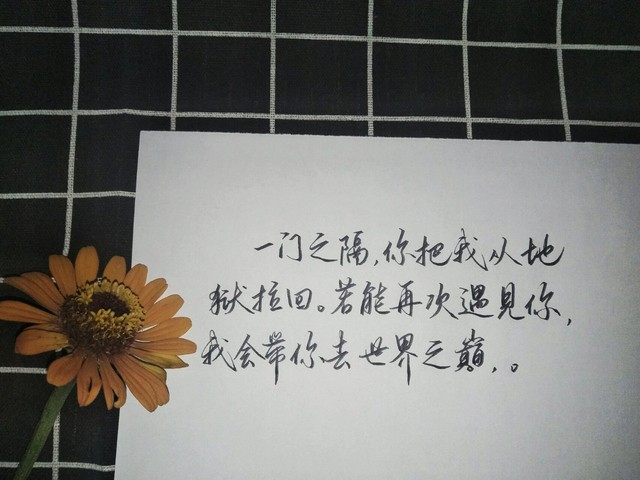 一门之隔,你把我从地
狱拉回。若能再次遇見你,
我会带你去世界之巅,。